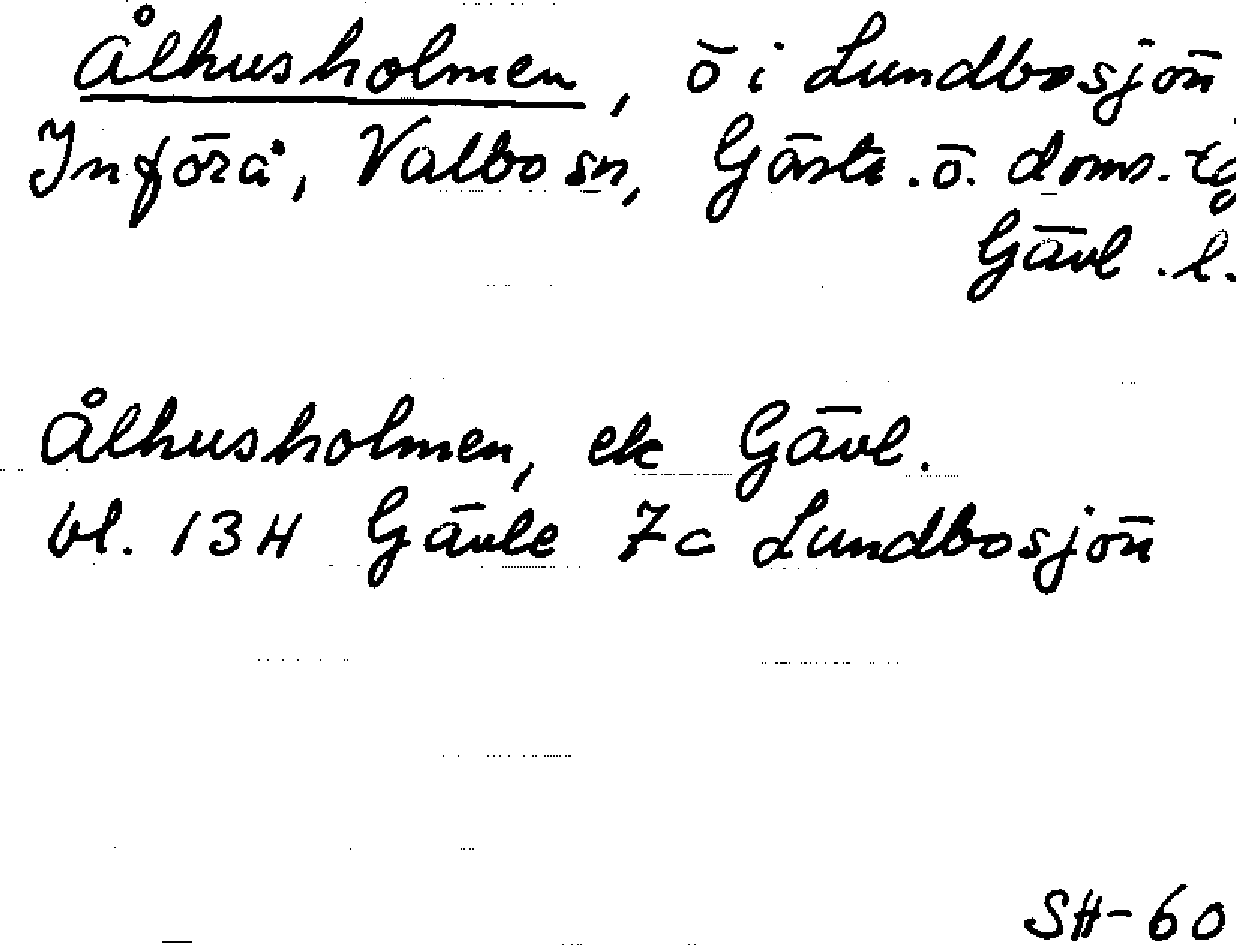 Ålhusholmen, ö i Lundbosjön
Införå, Valbo sn, Gästr. ö. doms.
Gävl. l.
Ålhusholmen, ek Gävl.
bl. 13H Gävle 7c Lundbosjön
SH-60